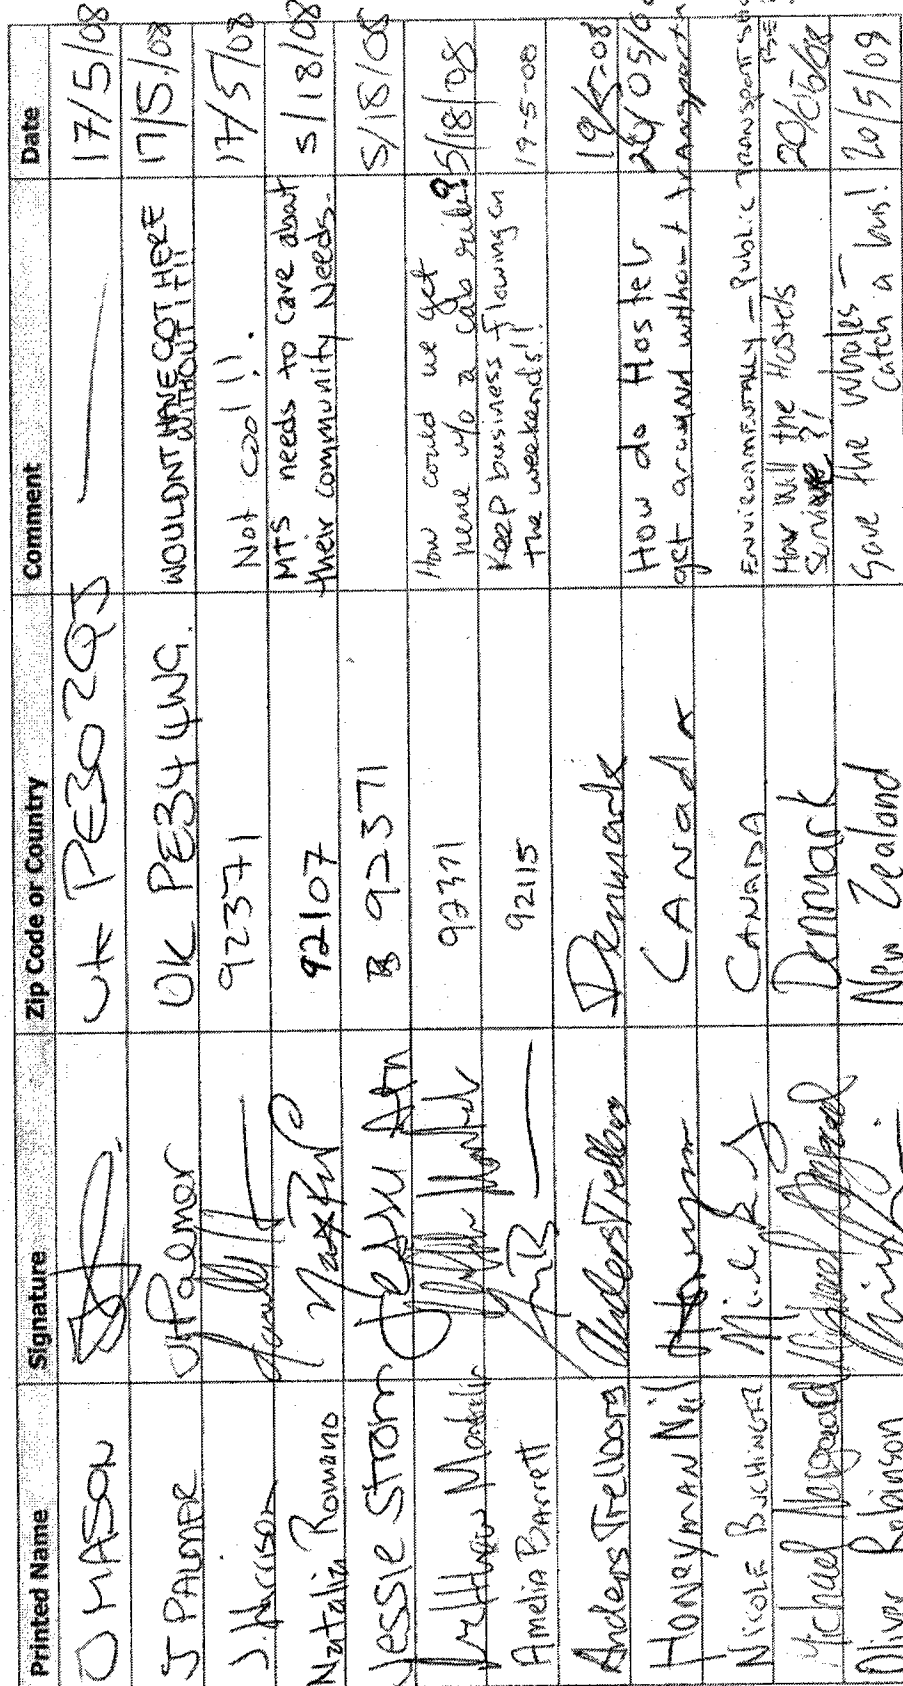 Printed Name Signature Zip Code or Country Comment Date
O MASON UK PE30 2QJ — 17/5/08
J PALMER JPalmer UK PE34 4WG. WOULDNT HAVE GOT HERE WITHOUT IT!! 17/5/08
J. Harrison 92371 Not cool!!. 17/5/08
Natalia Romano 92107 MTS needs to care about
their community Needs. 5/18/08
Jessie Strom 92371 5/18/08
Matthew 92371 How could we get
here w/o a cab ride? 5/18/08
Amelia Barrett 92115 Keep business flowing on
the weekends!! 19-5-08
Anders Trelborg Anders Trelborg Denmark 19/5-08
Honeyman Neil CANada How do Hostel
get around without transport 20/05/0
NICOLE BUCHINGER CANADA ENVIRONMENTALLY – PUBLIC TRANSPORT
Michael Denmark How will the Hostels
Survive ?! 20/05/08
Oliver Robinson New Zealand Save the Whales –
Catch a bus! 20/5/08